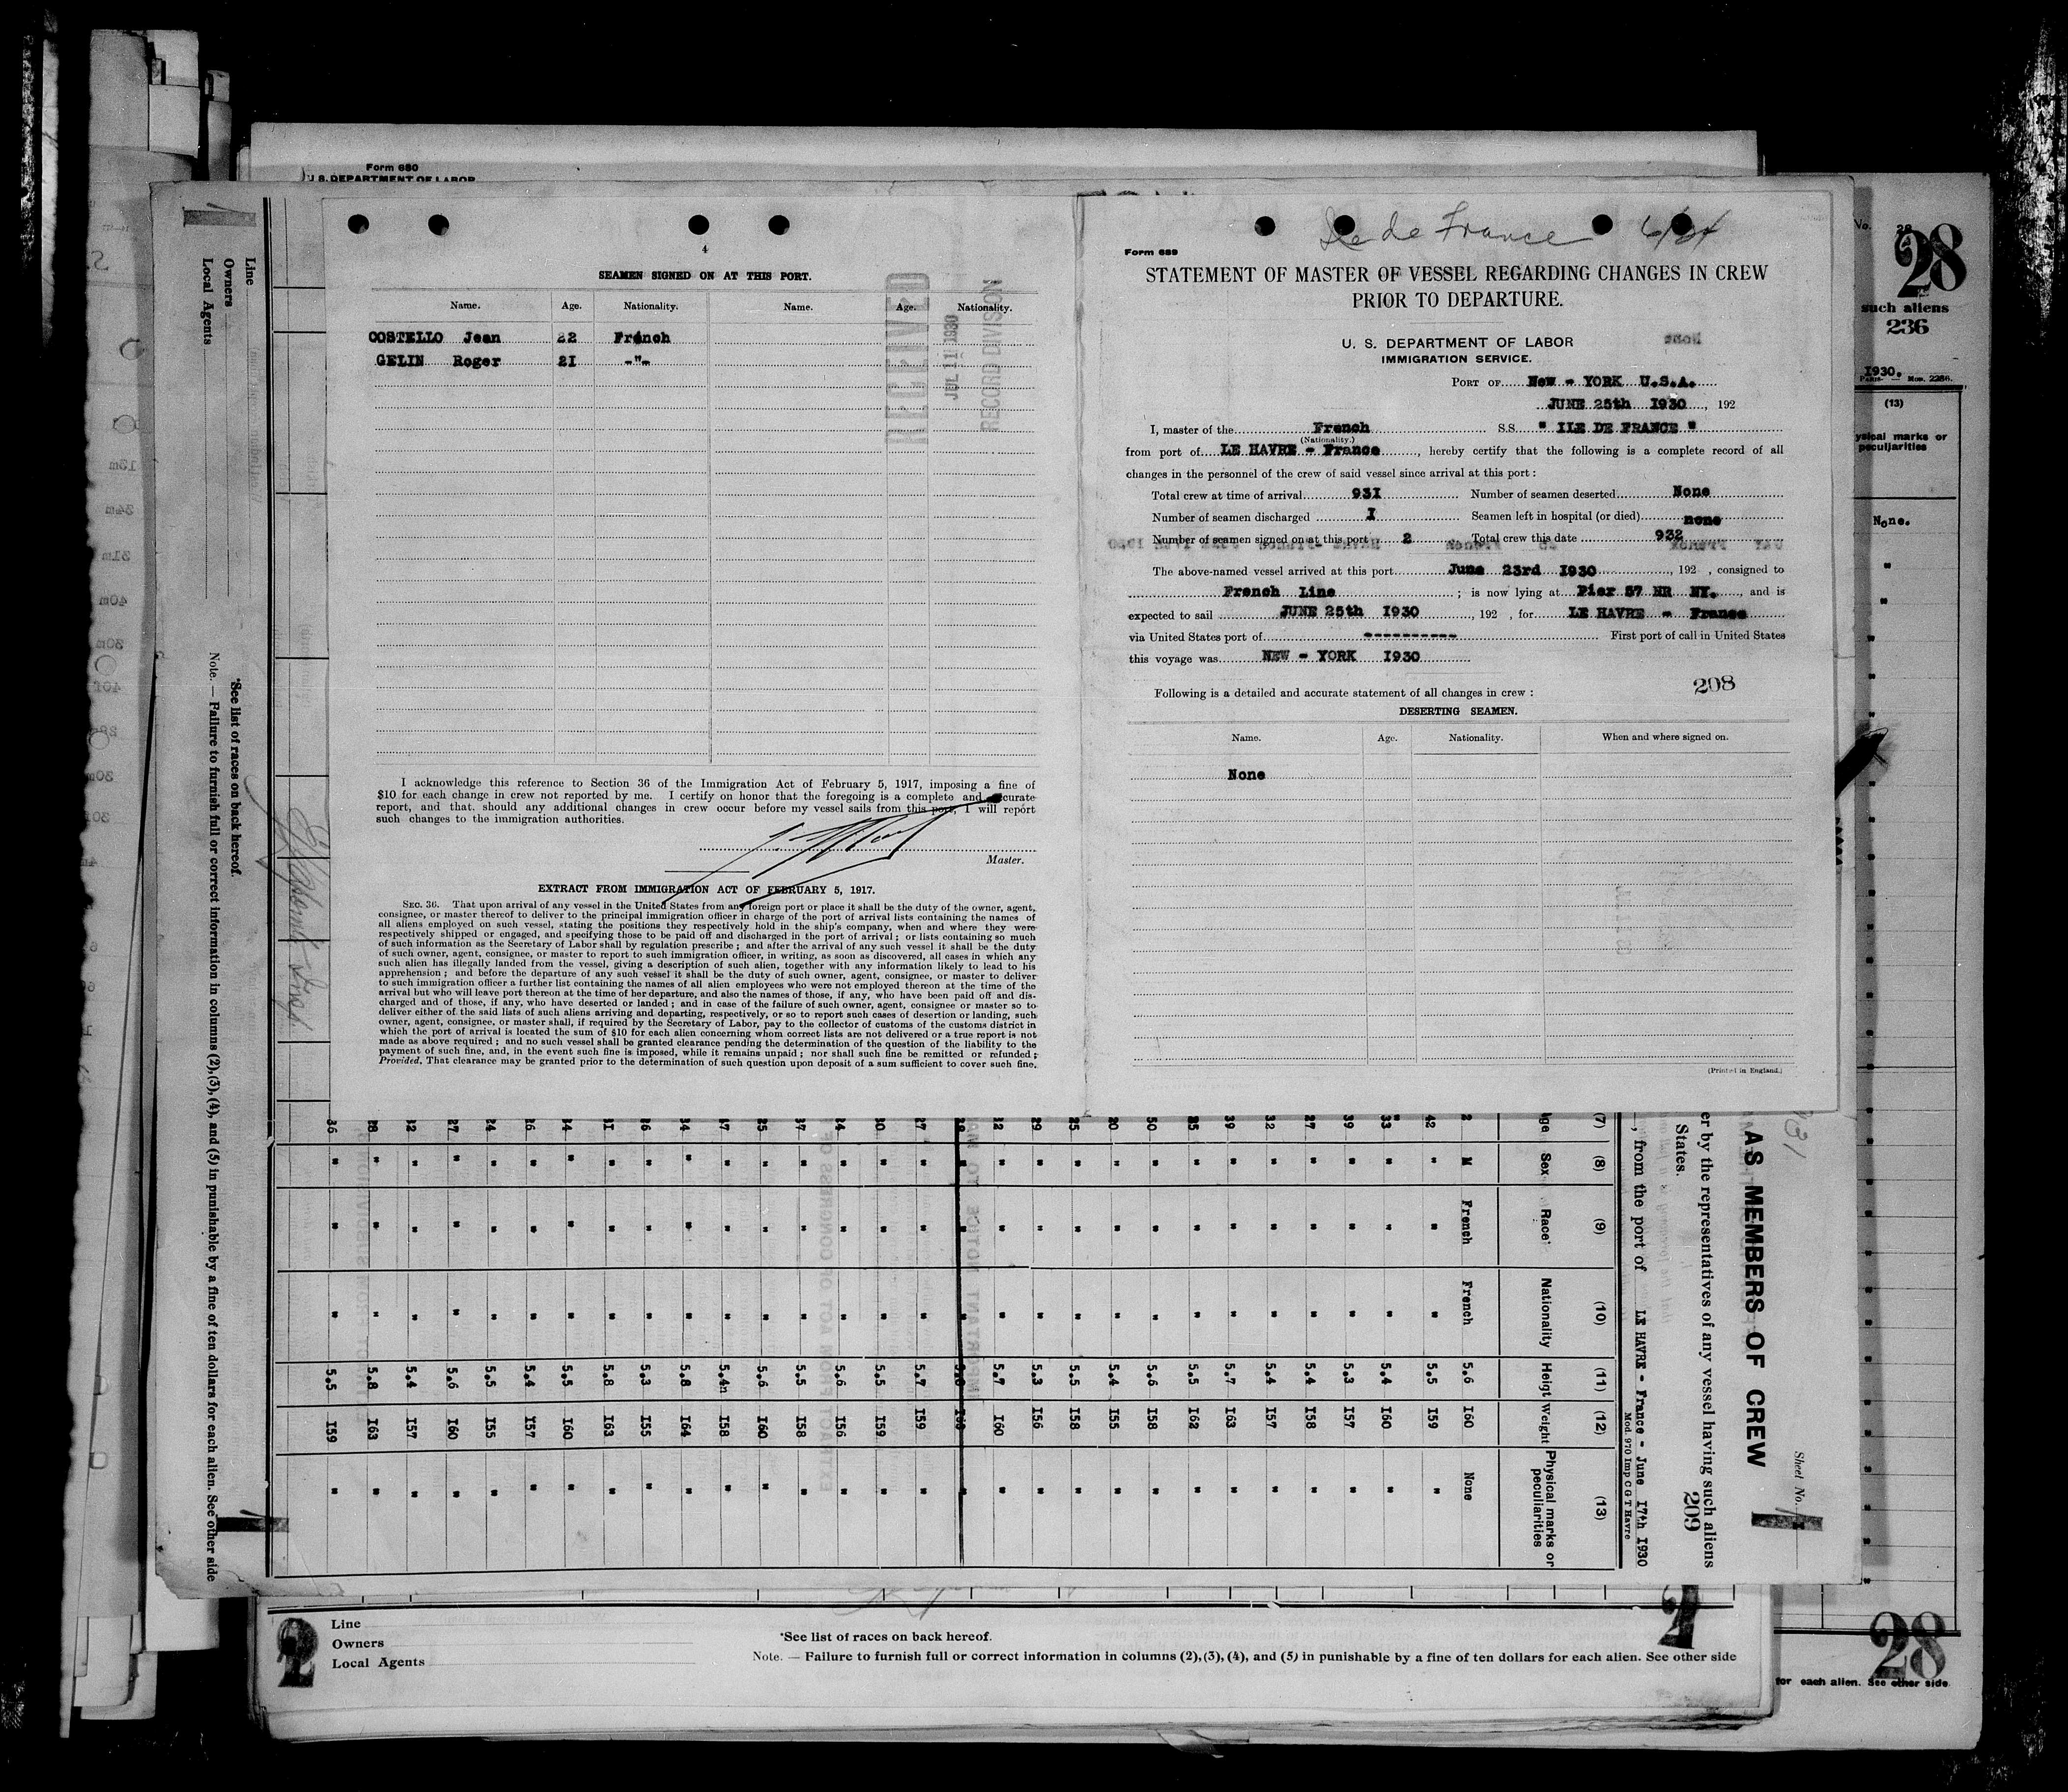 Form 680
U. S. DEPARTMENT OF LABOR
4
SEAMEN SIGNED ON AT THIS PORT.
Name. Age. Nationality. Name. Age. Nationality.
COSTELLO Jean 22 French
GELIN Roger 2I -"-
RECEIVED
JUL 11 1930
RECORD DIVISION
I acknowledge this reference to Section 36 of the Immigration Act of February 5, 1917, imposing a fine of
$10 for each change in crew not reported by me. I certify on honor that the foregoing is a complete and accurate
report, and that. should any additional changes in crew occur before my vessel sails from this port, I will report
such changes to the immigration authorities.
Master.
EXTRACT FROM IMMIGRATION ACT OF FEBRUARY 5, 1917.
SEC. 36. That upon arrival of any vessel in the United States from any foreign port or place it shall be the duty of the owner, agent,
consignee, or master thereof to deliver to the principal immigration officer in charge of the port of arrival lists containing the names of
all aliens employed on such vessel, stating the positions they respectively hold in the ship's company, when and where they were
respectively shipped or engaged, and specifying those to be paid off and discharged in the port of arrival ; or lists containing so much
of such information as the Secretary of Labor shall by regulation prescribe ; and after the arrival of any such vessel it shall be the duty
of such owner, agent, consignee, or master to report to such immigration officer, in writing, as soon as discovered, all cases in which any
such alien has illegally landed from the vessel, giving a description of such alien, together with any information likely to lead to his
apprehension ; and before the departure of any such vessel it shall be the duty of such owner, agent, consignee, or master to deliver
to such immigration officer a further list containing the names of all alien employees who were not employed thereon at the time of the
arrival but who will leave port thereon at the time of her departure, and also the names of those, if any, who have been paid off and dis-
charged and of those, if any, who have deserted or landed ; and in case of the failure of such owner, agent, consignee or master so to
deliver either of the said lists of such aliens arriving and departing, respectively, or so to report such cases of desertion or landing, such
owner, agent, consignee, or master shall, if required by the Secretary of Labor, pay to the collector of customs of the customs district in
which the port of arrival is located the sum of $10 for each alien concerning whom correct lists are not delivered or a true report is not
made as above required ; and no such vessel shall be granted clearance pending the determination of the question of the liability to the
payment of such fine, and, in the event such fine is imposed, while it remains unpaid ; nor shall such fine be remitted or refunded ;
Provided, That clearance may be granted prior to the determination of such question upon deposit of a sum sufficient to cover such fine.
Ile de France
Form 689
STATEMENT OF MASTER OF VESSEL REGARDING CHANGES IN CREW
PRIOR TO DEPARTURE.
U. S. DEPARTMENT OF LABOR
IMMIGRATION SERVICE.
PORT OF New - YORK U.S.A.
JUNE 25th I930, 192
I, master of the French S.S. " ILE DE FRANCE "
(Nationality.)
from port of LE HAVRE - France, hereby certify that the following is a complete record of all
changes in the personnel of the crew of said vessel since arrival at this port :
Total crew at time of arrival 93I Number of seamen deserted None
Number of seamen discharged I Seamen left in hospital (or died) none
Number of seamen signed on at this port 2 Total crew this date 932
The above-named vessel arrived at this port June 23rd I930, 192 , consigned to
French Line ; is now lying at Pier 57 NR NY., and is
expected to sail JUNE 25th I930, 192 , for LE HAVRE - France
via United States port of ---------- First port of call in United States
this voyage was NEW - YORK I930
208
Following is a detailed and accurate statement of all changes in crew :
DESERTING SEAMEN.
Name. Age. Nationality. When and where signed on.
None
(Printed in England.)
No. 28
28
such aliens
236
I930.
Paris — Mod. 2286.
(13)
ysical marks or
peculiarities
None.
Sheet No.
AS MEMBERS OF CREW
er by the representatives of any vessel having such aliens
209
States.
, from the port of LE HAVRE - France - June 17th I930
Mod. 970 Imp C G T Havre
(7) (8) (9) (10) (11) (12) (13)
Age Sex Race* Nationality Heigt Weight Physical marks or peculiarities
2 M French French 5.6 I60 None
42 " " " 5.5 I59 "
33 " " " 5.4 I60 "
39 " " " 5.3 I57 "
27 " " " 5.4 I58 "
32 " " " 5.4 I57 "
39 " " " 5.7 I63 "
35 " " " 5.5 I62 "
50 " " " 5.6 I58 "
20 " " " 5.4 I55 "
25 " " " 5.5 I58 "
29 " " " 5.3 I56 "
" " " 5.7 I60 "
27 " " " 5.7 I59 "
" " " 5.5 I59 "
" " " 5.6 I56 "
37 " " " 5.5 I58 "
25 " " " 5.6 I60 "
" " " 5.4 I58 "
" " " 5.8 I64 "
" " " 5.3 I55 "
" " " 5.8 I63 "
" " " 5.5 I60 "
" " " 5.4 I57 "
" " " 5.5 I55 "
27 " " " 5.6 I60 "
" " " 5.4 I57 "
" " " 5.8 I63 "
36 " " " 5.5 I59 "
Line
Owners
Local Agents
*See list of races on back hereof.
Note. — Failure to furnish full or correct information in columns (2),(3),(4), and (5) in punishable by a fine of ten dollars for each alien. See other side
2
Line
Owners
Local Agents
*See list of races on back hereof.
Note. — Failure to furnish full or correct information in columns (2),(3),(4), and (5) in punishable by a fine of ten dollars for each alien. See other side
28
for each alien. See other side